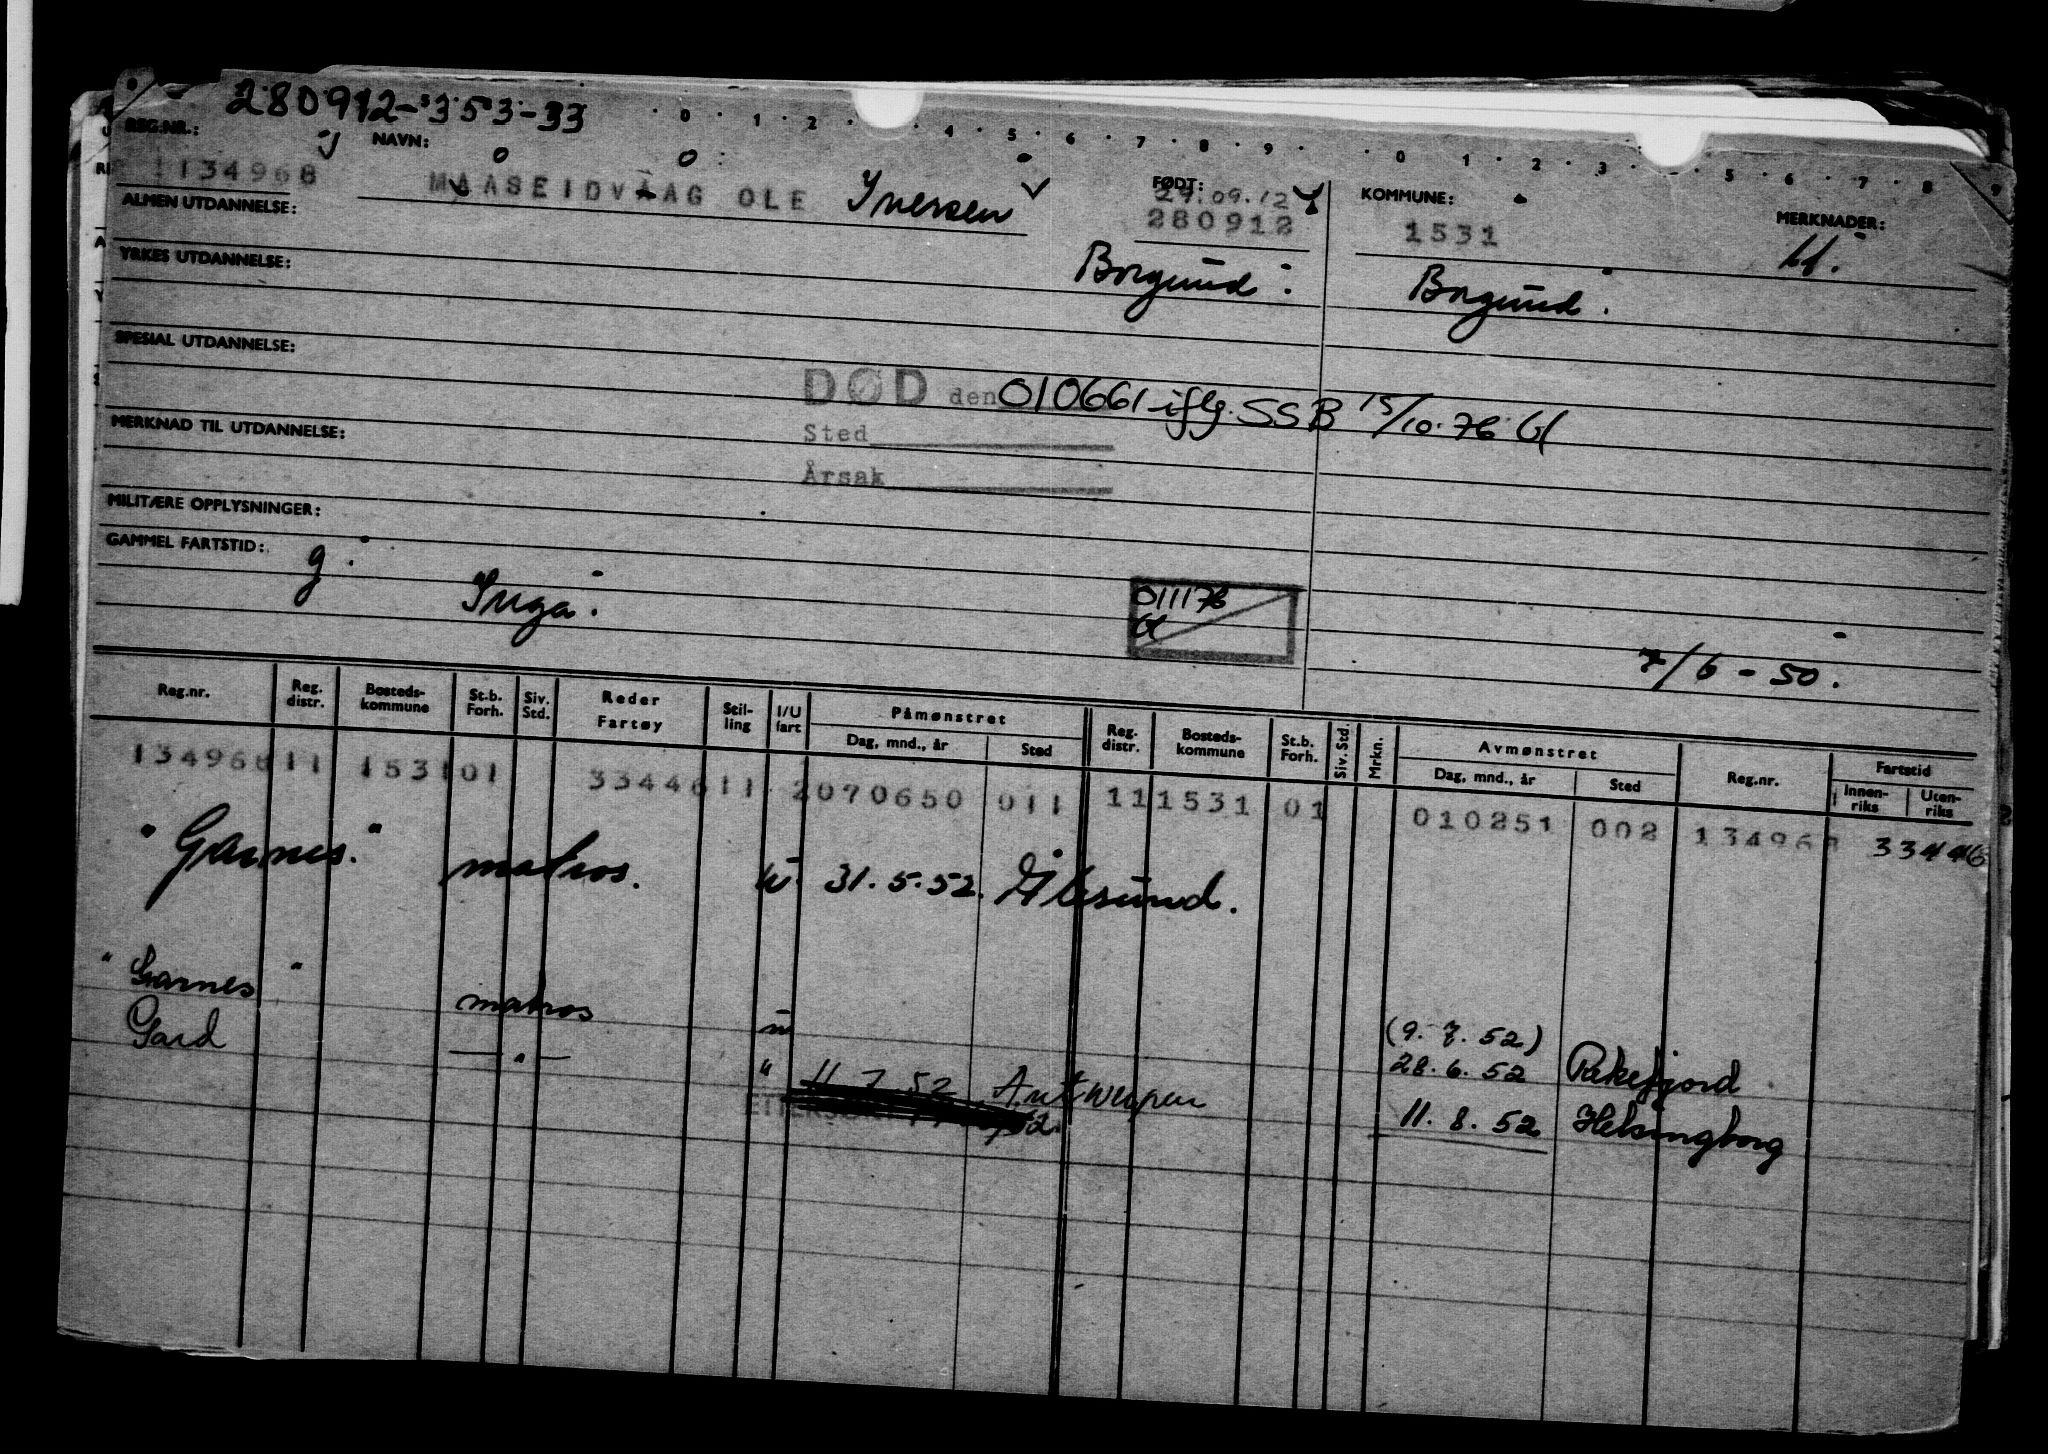 280912-3353-33
0 · 1 · 2 · 4 · 5 · 6 · 7 · 8 · 9 · 0 1 · 2 · 3 · 5 · 6 · 7 · 8 9
REG.NR.: NAVN: FØDT: KOMMUNE: MERKNADER:
1134968 MAASEIDVAAG OLE Iversen 29.09.12 280912 1531
ALMEN UTDANNELSE:
Borgund Borgund.
YRKES UTDANNELSE:
SPESIAL UTDANNELSE:
DØD den 010661 iflg. SSB 15/10.76
Sted
MERKNAD TIL UTDANNELSE:
Årsak
MILITÆRE OPPLYSNINGER:
GAMMEL FARTSTID: g.
Inga.
011176
7/6-50.
Reg.nr. Reg. distr. Bosteds-kommune St.b. Forh. Siv. Std. Reder Fartøy Stil-ling I/U fart Påmønstret Dag, mnd., år Sted Reg. distr. Bosteds-kommune St.b. Forh. Siv. Std. Mrkn. Avmønstret Dag, mnd., år Sted Reg.nr. Fartstid Innen-riks Uten-riks
134968 11 1531 01 33446 11 2 070650 011 11 1531 01 010251 002 134968 33446
"Garnes." matros. u. 31.5.52. Ålesund.
"Garnes" matros u (9.7.52)
28.6.52 Pakefjord
Gard —"— " 11.7.52 Antwerpen
11.8.52 Helsingborg